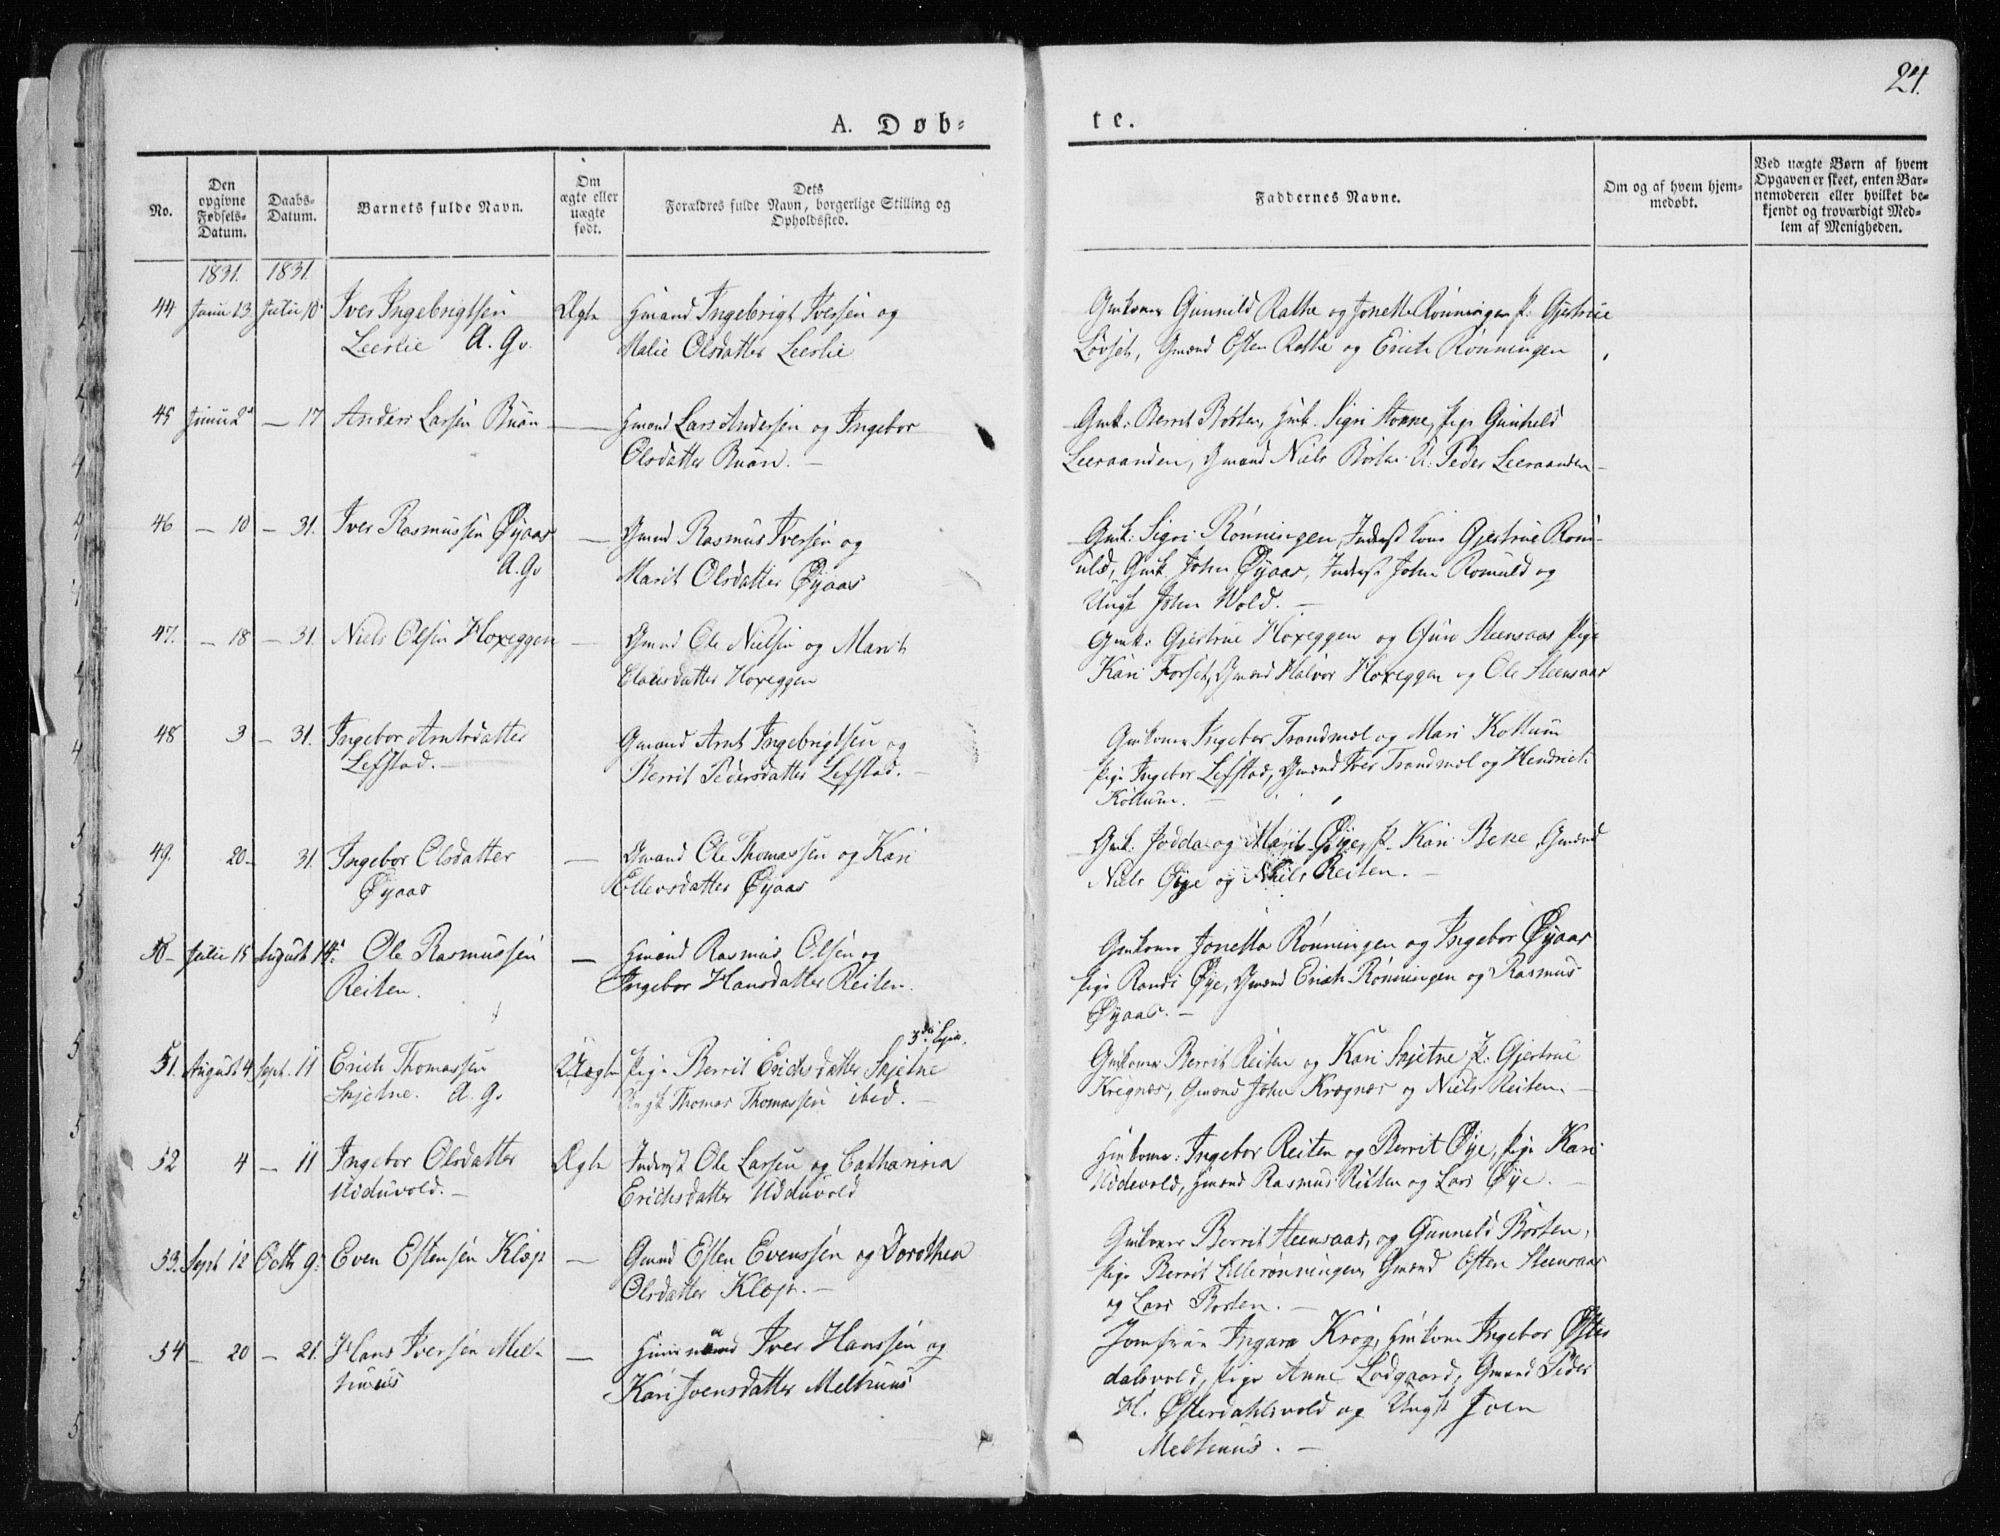 24.
A. Døb-
te.
No.
Den opgivne Fødsels-Datum.
Daabs-Datum.
Barnets fulde Navn.
Om ægte eller uægte født.
Dets Forældres fulde Navn, borgerlige Stilling og Opholdssted.
Faddernes Navne.
Om og af hvem hjem-medøbt.
Ved uægte Børn af hvem Opgaven er skeet, enten Bar-nemoderen eller hvilket be-kjendt og troværdigt Med-lem af Menigheden.
1831. 1831.
44 Junii 13. Julii 10. Iver Ingebrigtsen Ægte Hmand Ingebrigt Iversen og
Leerlie A. Gv. Malie Olsdatter Leerlie
Gmkoner Gunnild Rathe og Jonetta Rønningen P: Gjertrue
Løvset, Gmænd Esten Rathe og Erich Rønningen
45 Junii — 17 Anders Larsen Buan — Hmand Lars Andersen og Ingebor
Olsdatter Buan. —
Gmk: Berrit Borten, Hmk. Sigri Pige Gunhild
Leeraanden, Gmænd Niels Borten U: Peder Leeraanden —
46 — 10 — 31. Iver Rasmussen Øyaas — Gmand Rasmus Iversen og
A. Gv Marit Olsdatter Øyaas
Gmk: Sigri Rønningen, Inderst Kone Gjertrue Rom-
uld, Gmk John Øyaas, Inderst John Romuld og
Ungk John Wold. —
47. — 18 — 31. Niels Olsen Hoxeggen — Gmand Ole Nielsen og Marit
Hoxeggen
Gmk: Gjertrue Hoxeggen og Guro Steensaas Pige
Kari Forset, Gmænd Halvor Hoxeggen og Ole Steensaas
48 3 — 31. Ingebor Arntsdatter Gmand Arnt Ingebrigtsen og
Lefstad. — Berrit Pedersdatter Lefstad. —
Gmkoner Ingebor Trandmol og Mari Kottum
Pige Ingebor Lefstad, Gmænd Iver Trandmol og Hendrich
Kottum. —
49. 20 — 31. Ingebor Olsdatter — Gmand Ole Thomassen og Kari
Øyaas Ellevsdatter Øyaas
Gmk. Jodda og Marit Øye, P. Kari Gmænd
Niels Øye og Niels Reiten. —
50 — Julii 15 August 14: Ole Rasmussen — Hmand Rasmus Olsen og
Reiten. Ingebor Hansdatter Reiten.
Gmkoner Jonetta Rønningen og Ingebor Øyaas
Pige Randi Øye, Gmænd Erich Rønningen og Rasmus
Øyaas. —
51. August 4 Sept. 11 Erich Thomassen Uægte Pige Berrit Erichsdatter Skjetne
Skjetne. A. Gv Ungk Thomas Thomassen ibid. —
Gmkoner Berrit Reiten og Kari Skjetne P: Gjertrue
Kregnæs, Gmænd John Krognæs og Niels Reiten. —
52 4 — 11 Ingebor Olsdatter Ægte Inderst Ole Larsen og Catharina
Udduvold. — Erichsdatter Udduvold
Hmkoner: Ingebor Reiten og Berrit Øye, Pige Kari
Uddevold, Hmænd Rasmus Reiten og Lars Øye. —
53. Sept 12 Octb 9: Even Estensen Kløp — Gmand Esten Evenssen og Dorothea
Olsdatter Kløp. —
Gmkoner Berrit Steensaas, og Gunnild Borten,
Pige Berrit Lillerønningen, Gmænd Esten Steensaas
og Lars Borten. —
54 — 20 — 21. Hans Iversen Mel- — Huusmand Iver Hanssen og
huus Kari Joensdatter Melhuus
Jomfrue Ingara Krog, Hmkone Ingebor Øster
dalsvold, Pige Anne Lodgaard, Gmænd Peder
H. Østerdahlsvold og Ungk Joen
Melhuus. —